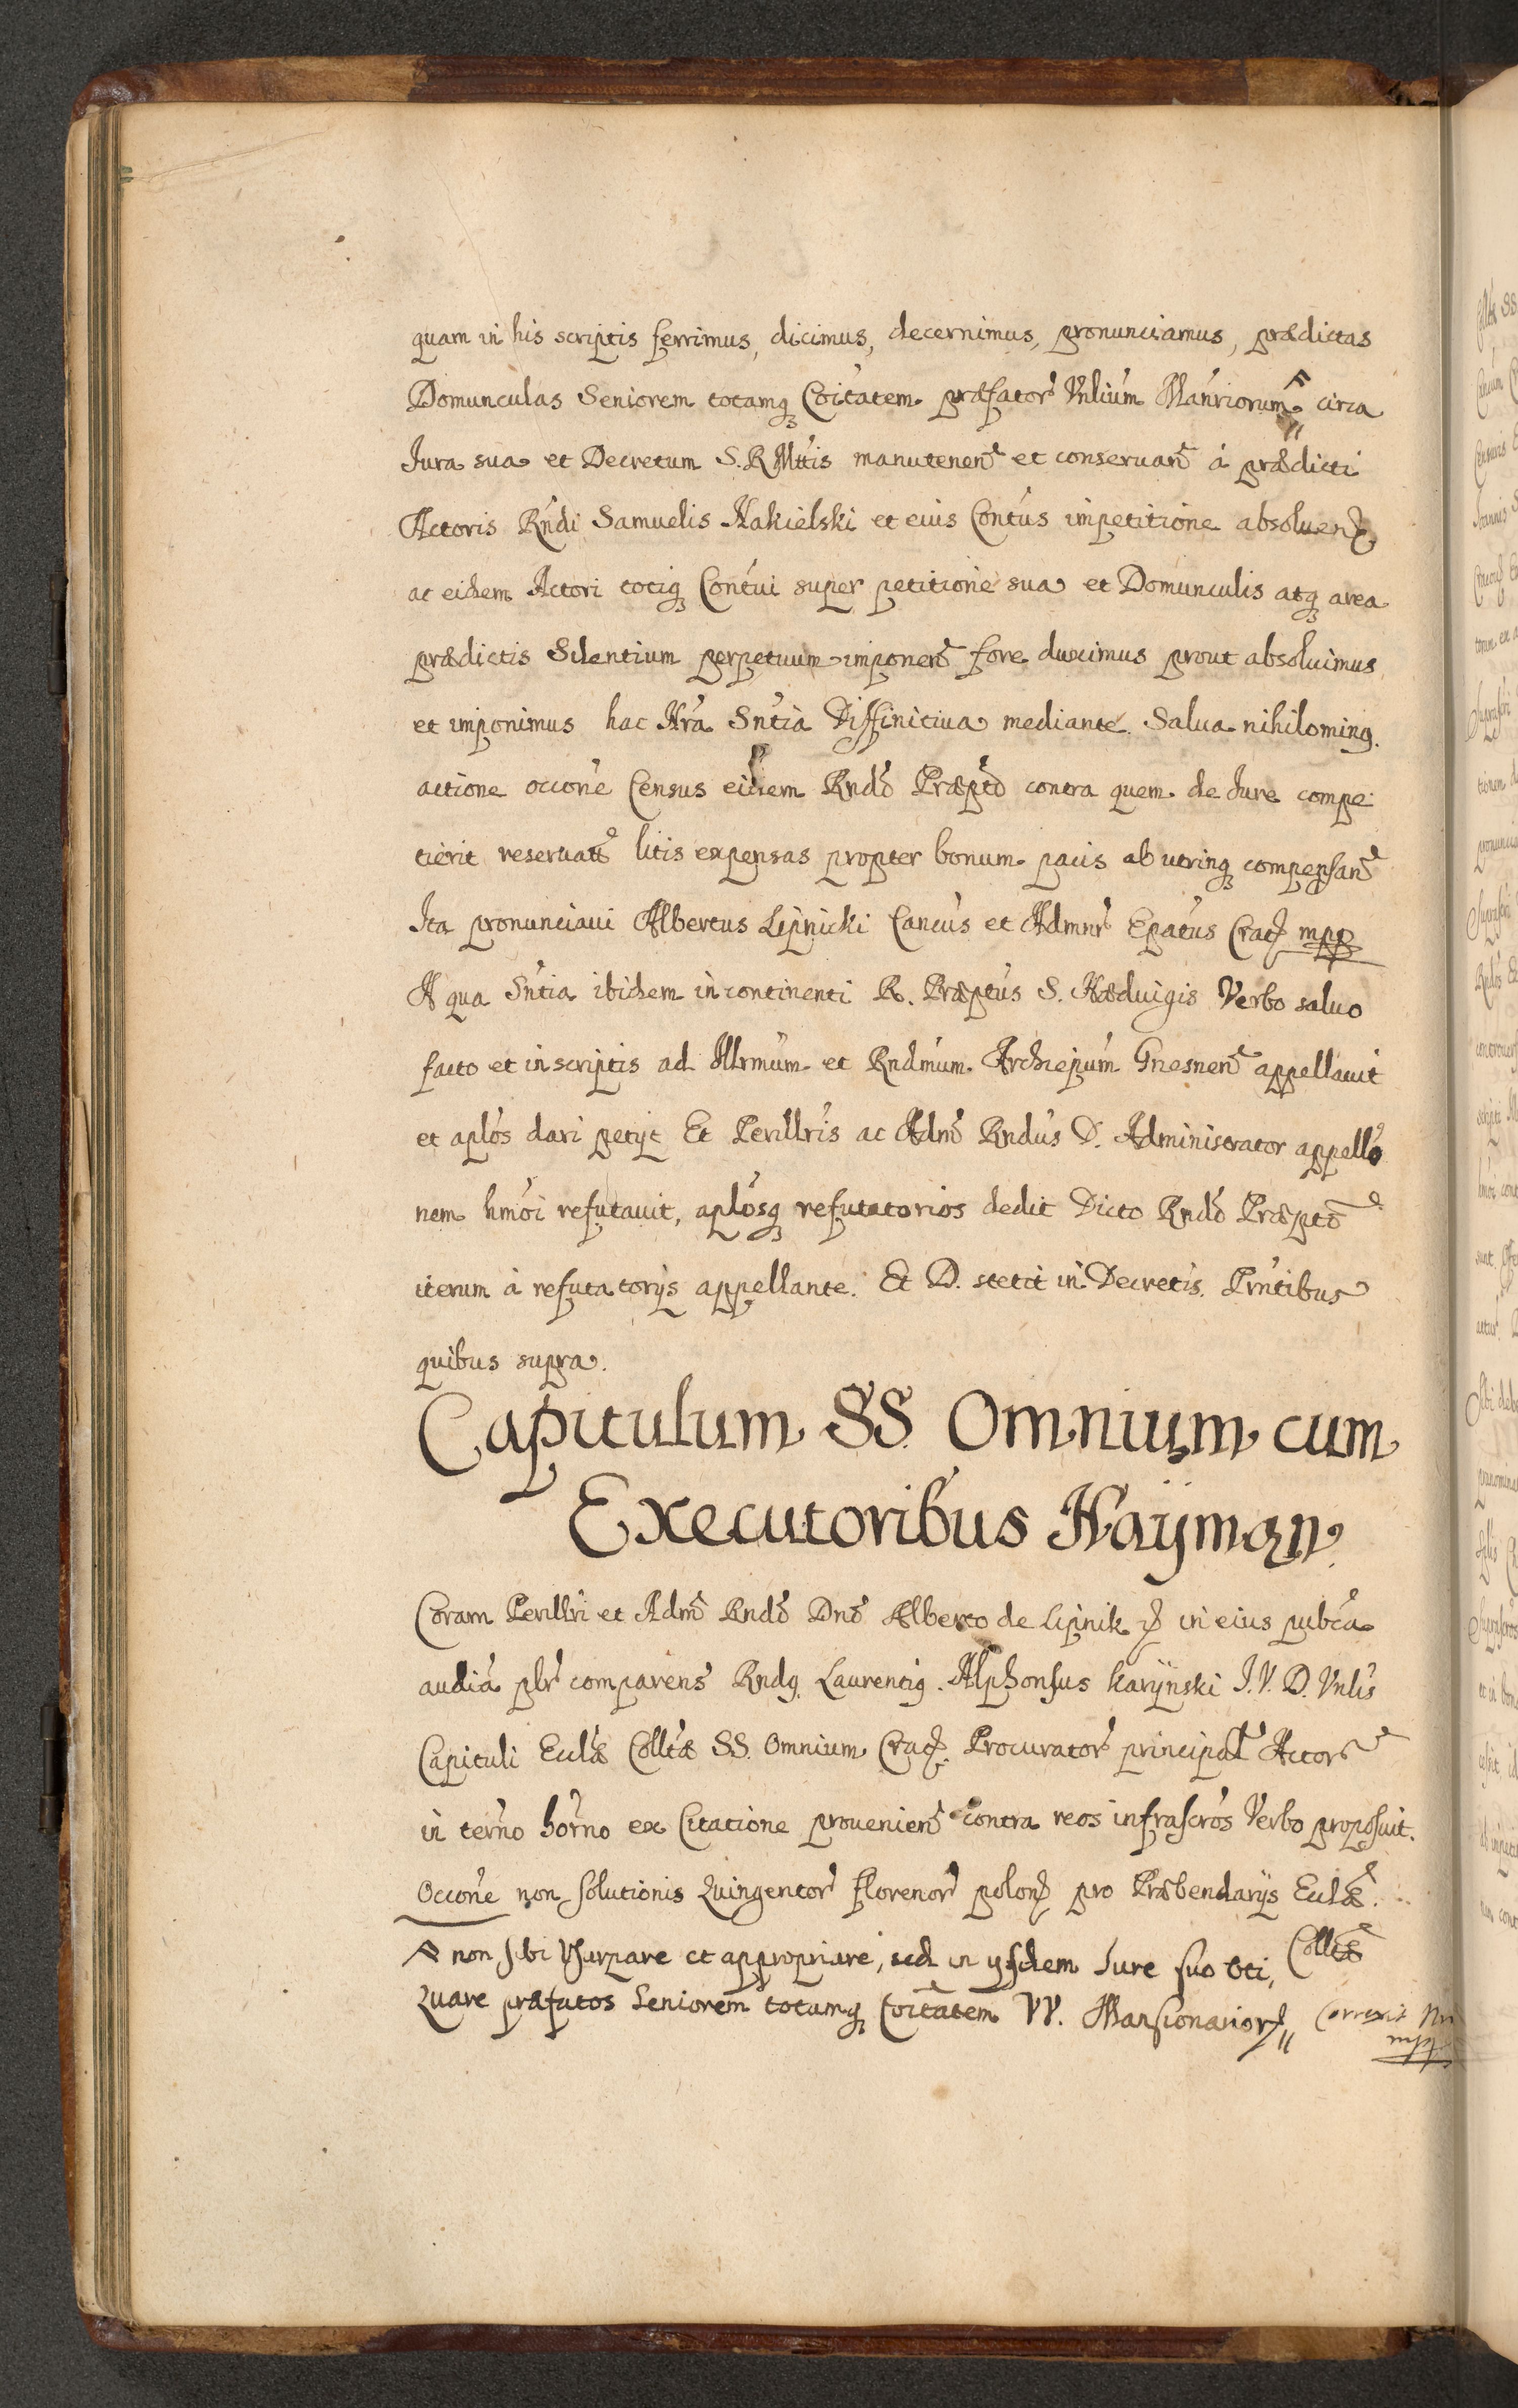 quam in his scriptis ferrimus, dicimus, decernimus, pronunciamus, prædictas
Domunculas Seniorem totamq Coitatem præfator Vnlium Manriorum circa
Jura sua et Decretum S. R Mttis manutenen et conseruan á prædicti
Actoris Rndi Samuelis Nakielski et eius Contus impetitione absoluen
ac eidem Actori totiq Contui super petitione sua et Domunculis atq area
prædictis Silentium perpetuum imponen fore duximus prout absoluimus
et imponimus hac Nra Sntia Diffinitiua mediante. Salua nihilominq.
actione occone Census eidem Rndo Præpto contra quem de Jure compe:
tierit reseruata litis expensas propter bonum pacis ab utrinq compensan
Ita pronunciaui Albertus Lipnicki Cancus et Admnr Epatus Crac mpp
A qua Sntia ibidem in continenti R. Præptus S. Hæduigis Verbo saluo
facto et in scriptis ad Illrmum et Rndmum Archiepum Gnesnen appellauit
et aplos dari petijt Et Perillris ac Adm Rndus D. Administrator appello
nem hmoi refutauit, aplosq refutatorios dedit Dicto Rndo Præpto
iterum á refutatorijs appellante. Et D. stetit in Decretis. Prntibus
quibus supra.
Capitulum SS. Omnium cum
Executoribus Haÿman
Coram Perillri et Adm Rndo Dno Alberto de Lipnik in eius pubca
audia plr comparens Rndq Laurentiq. Alphonsus Karÿnski J. V. D. Vnlis
Capituli Eccláe Colltæ SS. Omnium Crac. Procurator principal Actor
in termo horno ex Citatione prouenien contra reos infrascros Verbo proposuit.
Occone non solutionis Quingentor florenor polon pro Præbendarijs Eclæ
Colltæ
non sibi Vsurpare et appropriare, sed in ijsdem Jure suo Vti,
Quare præfatos Seniorem totamq Coitatem VV. Mansionarior
Correxit
mpp